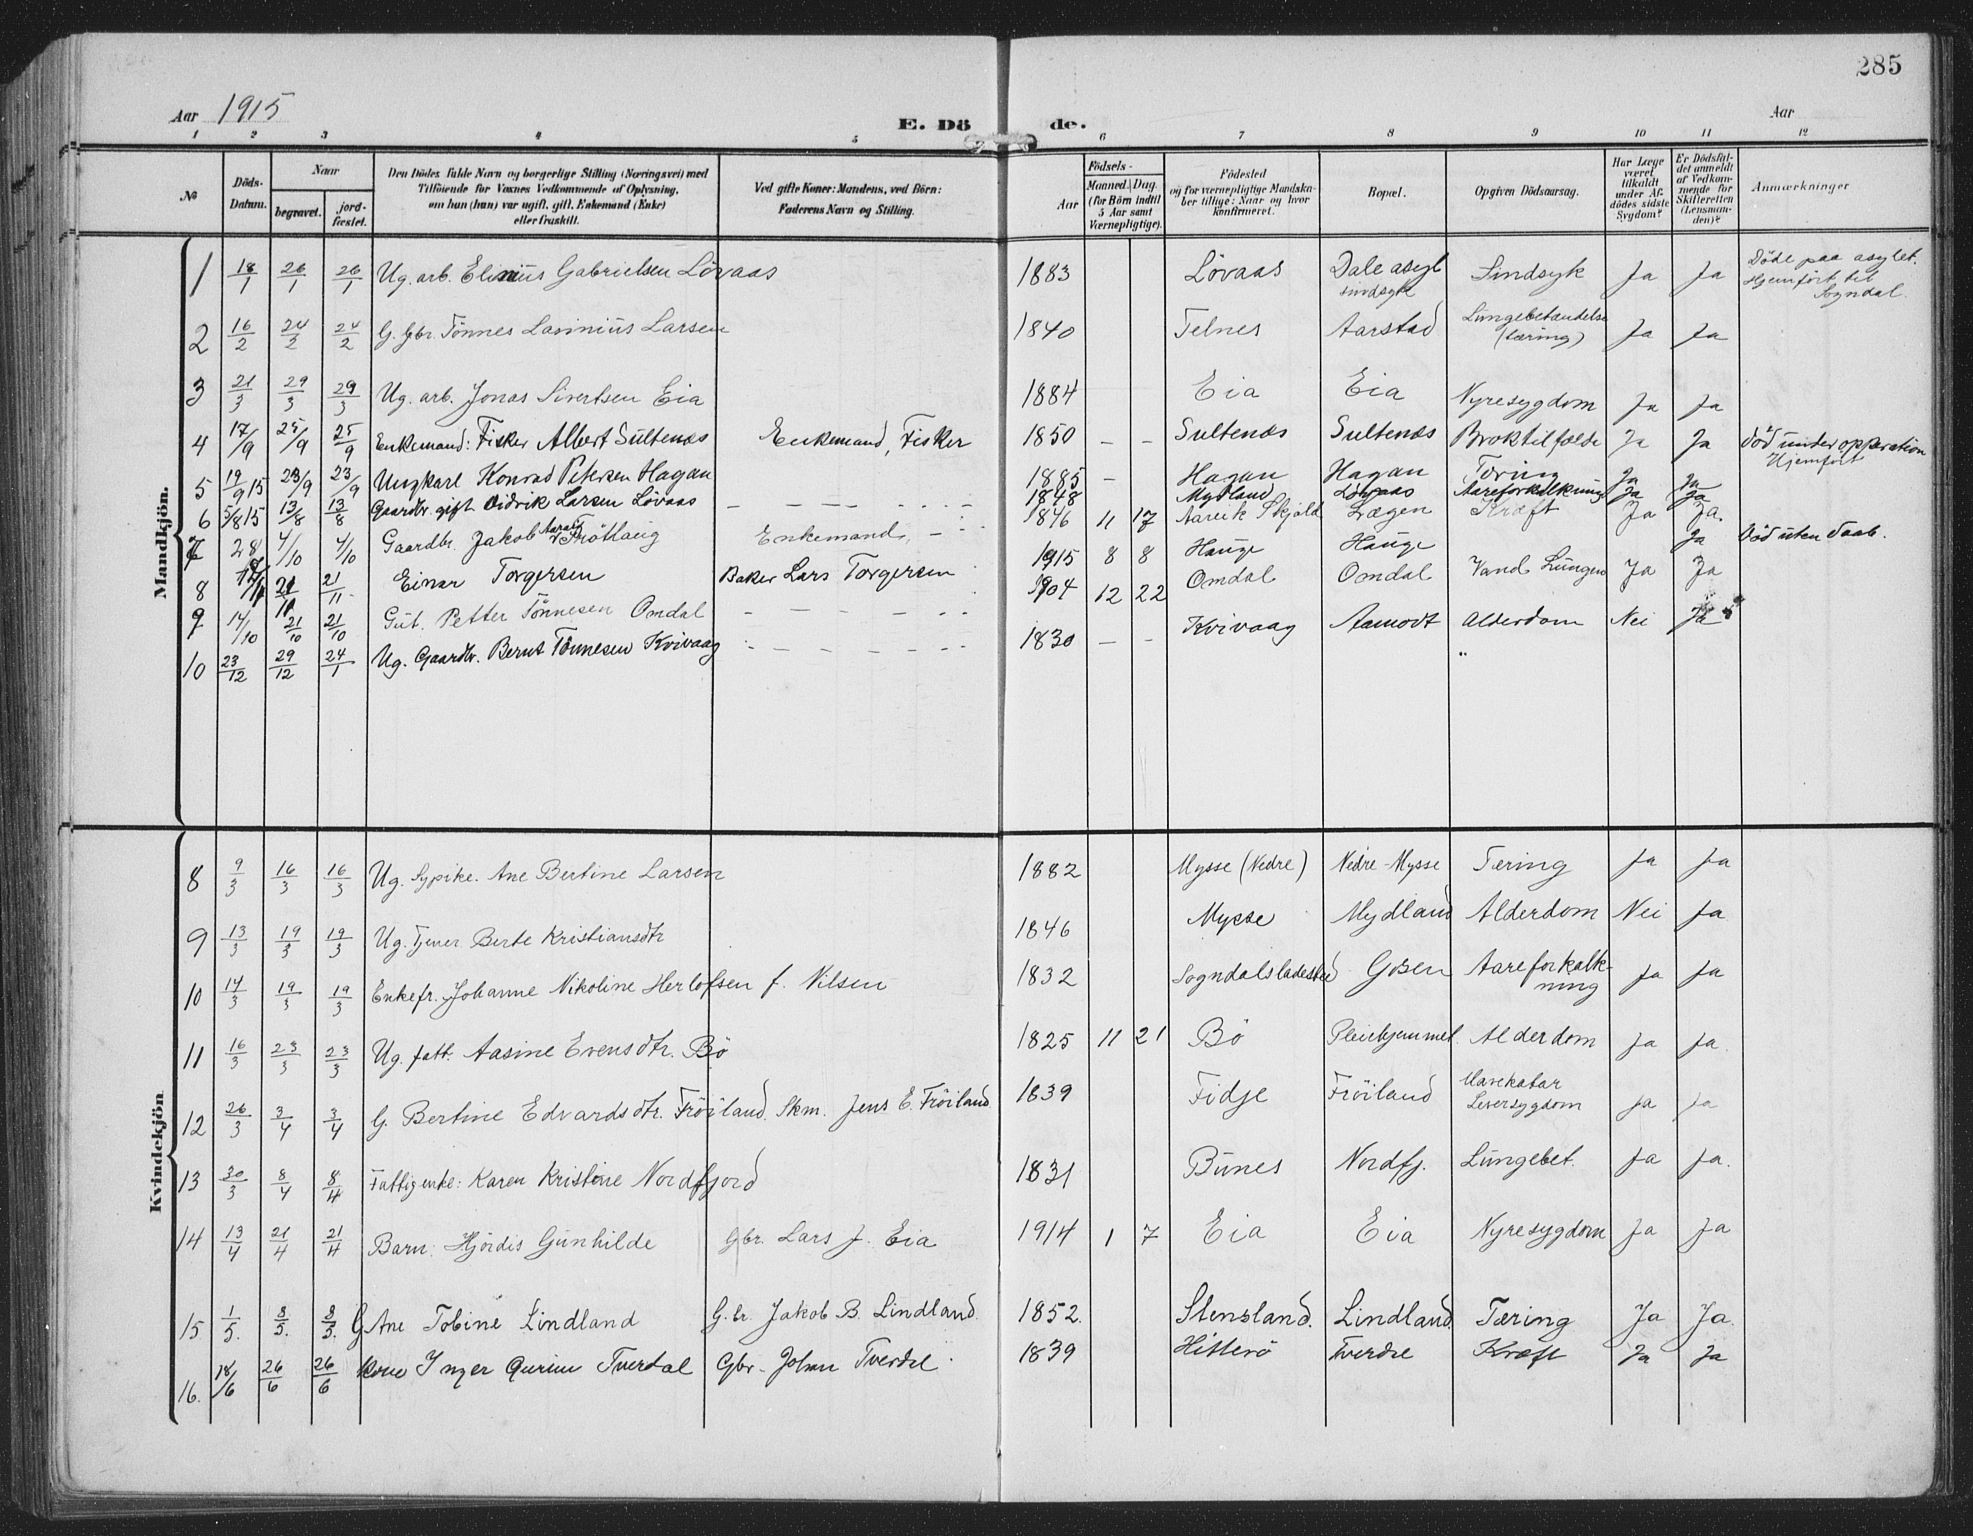 285
Aar 1915
E. Döde.
Aar
1 2 3 4 5 6 7 8 9 10 11 12
No
Döds-Datum.
Naar
begravet.
jord-fæstet.
Den Dödes fulde Navn og borgerlige Stilling (Næringsvei) med
Tilföiende for Voxnes Vedkommende af Oplysning,
om han (hun) var ugift, gift, Enkemand (Enke)
eller fraskilt.
Ved gifte Koner: Mandens, ved Börn:
Faderens Navn og Stilling.
Födsels-
Aar
Maaned. Dag.
(for Börn indtil
5 Aar samt
Værnepligtige).
Födested
og for værnepligtige Mandska-
ber tillige: Naar og hvor
konfirmeret.
Bopæl.
Opgiven Dödsaarsag.
Har Læge
været
tilkaldt
under Af-
dödes sidste
Sygdom?
Er Dödsfal-
det anmeldt
af Vedkom-
mende for
Skifteretten
(Lensman-
den)?
Anmærkninger
Mandkjön.
1 18/1 26/1 26/1 Ug. arb. Elinius Gabrielsen Lövaas 1883 Lövaas Dale asyl sindsyk Sindsyk Ja Ja Döde paa asylet. Hjemfört til Sogndal.
2 16/2 24/2 24/2 G. Gbr. Tönnes Lasinius Larsen 1840 Telnes Aarstad Lungebetændelse (tæring) Ja Ja
3 21/3 29/3 29/3 Ug. arb. Jonas Sivertsen Eia 1884 — — Eia Eia Nyresygdom Ja Ja
4 17/9 25/9 25/9 Enkemand: Fisker Albert Sultenæs Enkemand, Fisker 1850 — — Sultenæs Sultenæs Broktilfælde Ja Ja död under opperation Hjemfört
5 19/9 15 23/9 23/9 Ungkarl Konrad Petersen Hagan 1885 — Hagan Hagan Tæring Ja Ja
6 5/8 15 13/8 13/8 Gaardbr. gift Didrik Larsen Lövaas 1848 Mydland Lövaas Aareforkalkning Ja Ja
7 28 4/10 4/10 Gaardbr. Jakob Fröitlaug Enkemand 1846 11 17 Aarvik Skjold Lægen Kræft Ja Ja.
8 21/11 21/11 Einar Torgersen Baker Lars Torgersen 1915 8 8 Hauge Hauge Ja död uten daab.
9 14/10 21/10 21/10 Gut. Petter Tönnesen Omdal 1904 12 22 Omdal Omdal Vand Lungen Ja Ja
10 23/12 29/12 24/1 Ug. Gaardbr. Bernt Tönnesen Kvivaag 1830 — — Kvivaag Aamodt Alderdom Nei Ja
Kvindekjön
8 9/3 16/3 16/3 Ug. Sypike. Ane Bertine Larsen 1882 Mysse (Nedre) Nedre-Mysse Tæring Ja Ja
9 13/3 19/3 19/3 Ug. Tjener Berte Kristiansdtr 1846 Mysse Mydland Alderdom Nei Ja
10 14/3 19/3 19/3 Enkefr. Johanne Nikoline Herlofsen f. Nilsen 1832 Sogndalsladested Gösen Aareforkalkning Ja Ja
11 16/3 23/3 23/3 Ug. fatt. Aasine Evensdtr. Bö 1825 11 21 Bö Pleiehjemmet. Alderdom Ja Ja.
12 26/3 3/4 3/4 G. Bertine Edvardsdtr. Fröiland. Skm. Jens E. Fröiland 1839 Fidje Fröiland Mavekatar Leversygdom Ja Ja
13 30/3 8/4 8/4 Fattigenke: Karen Kristine Nordfjord 1831 Bunes Nordfj. Lungebet. Ja Ja.
14 13/4 21/4 21/4 Barn: Hjördis Gunhilde Gbr. Lars J. Eia 1914 1 7 Eia Eia Nyresygdom Ja Ja
15 1/5. 8/5. 8/5. G Ane Tobine Lindland G.br. Jakob B. Lindland 1852. Stensland. Lindland. Tæring Ja Ja.
16. 18/6 26/6 26/6 Kone Inger Gurine Tverdal Gbr. Johan Tverdal 1839 Hitterö Tverdal Kræft Ja Ja